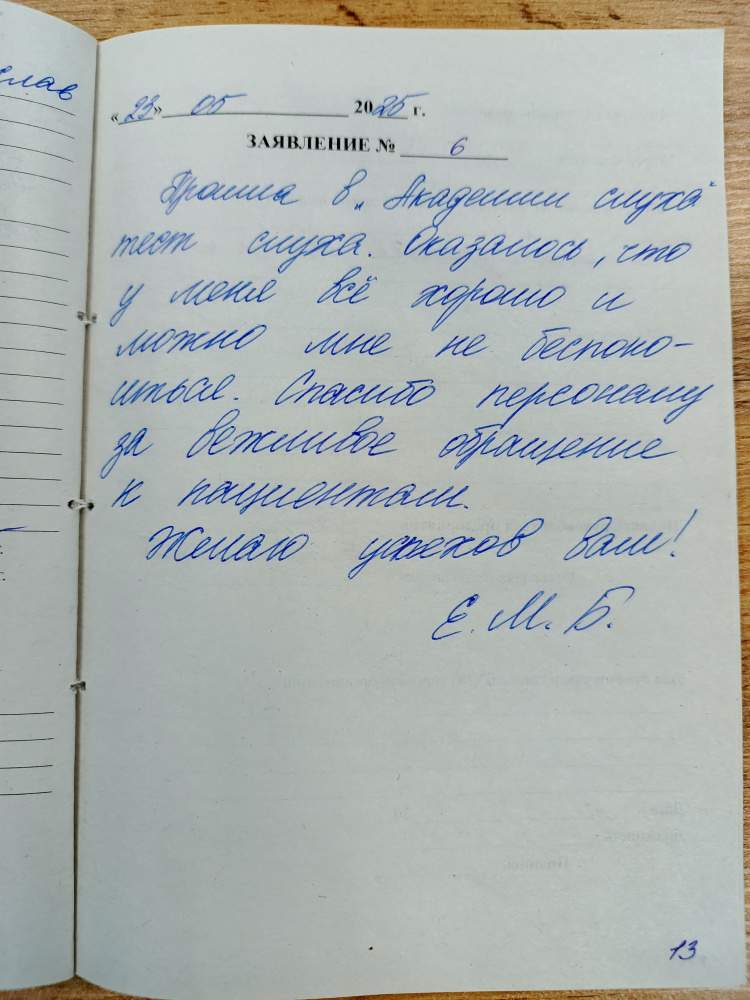 «23» 05 2025 г.
ЗАЯВЛЕНИЕ № 6
Прошла в „Академии слуха"
тест слуха. Оказалось, что
у меня всё хорошо и
можно мне не беспоко-
иться. Спасибо персоналу
за вежливое обращение
к пациентам.
Желаю успехов вам!
Е. М. Б.
13